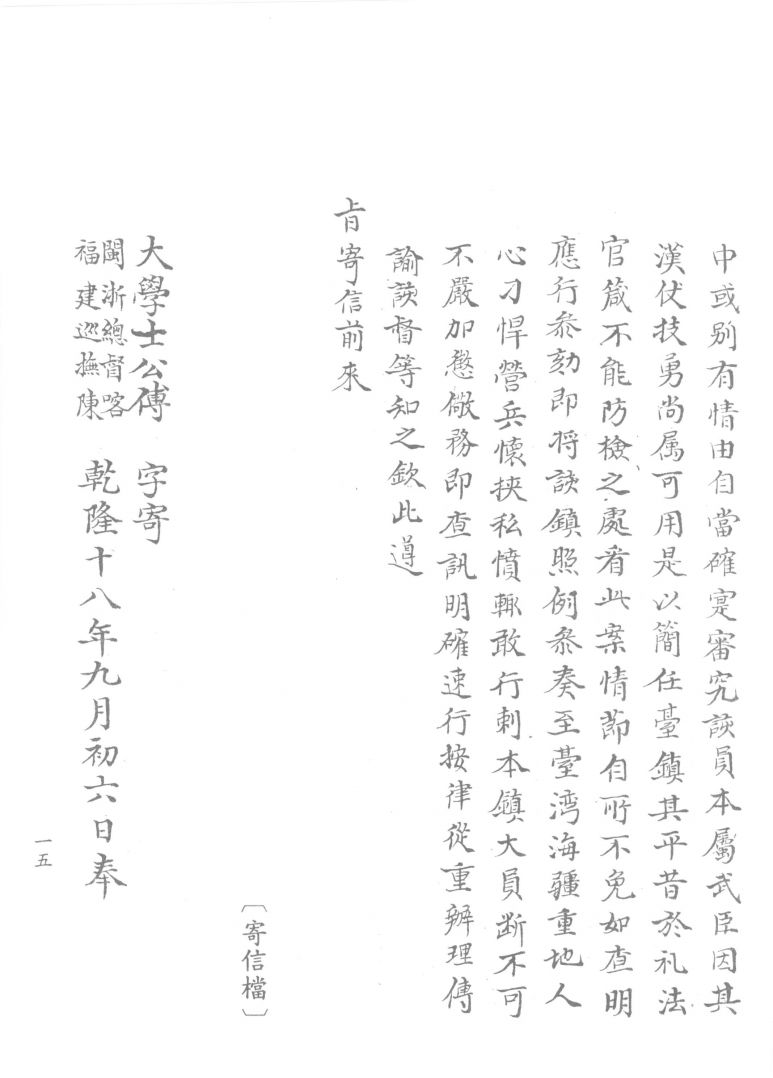 中或别有情由自當確寔審究該員本屬武臣因其
漢仗技勇尚属可用是以簡任臺鎮其平昔於礼法
官箴不能防檢之處看此案情節自所不免如查明
應行叅劾即將該鎮照例叅奏至臺湾海疆重地人
心刁悍營兵懷挾私憤輒敢行刺本鎮大員断不可
不嚴加懲儆務即查訊明確速行按律從重辦理傳
諭該督等知之欽此遵
旨寄信前來
〔寄信檔〕
大學士公傅　字寄
閩浙總督喀
福建巡撫陳
乾隆十八年九月初六日奉
一五